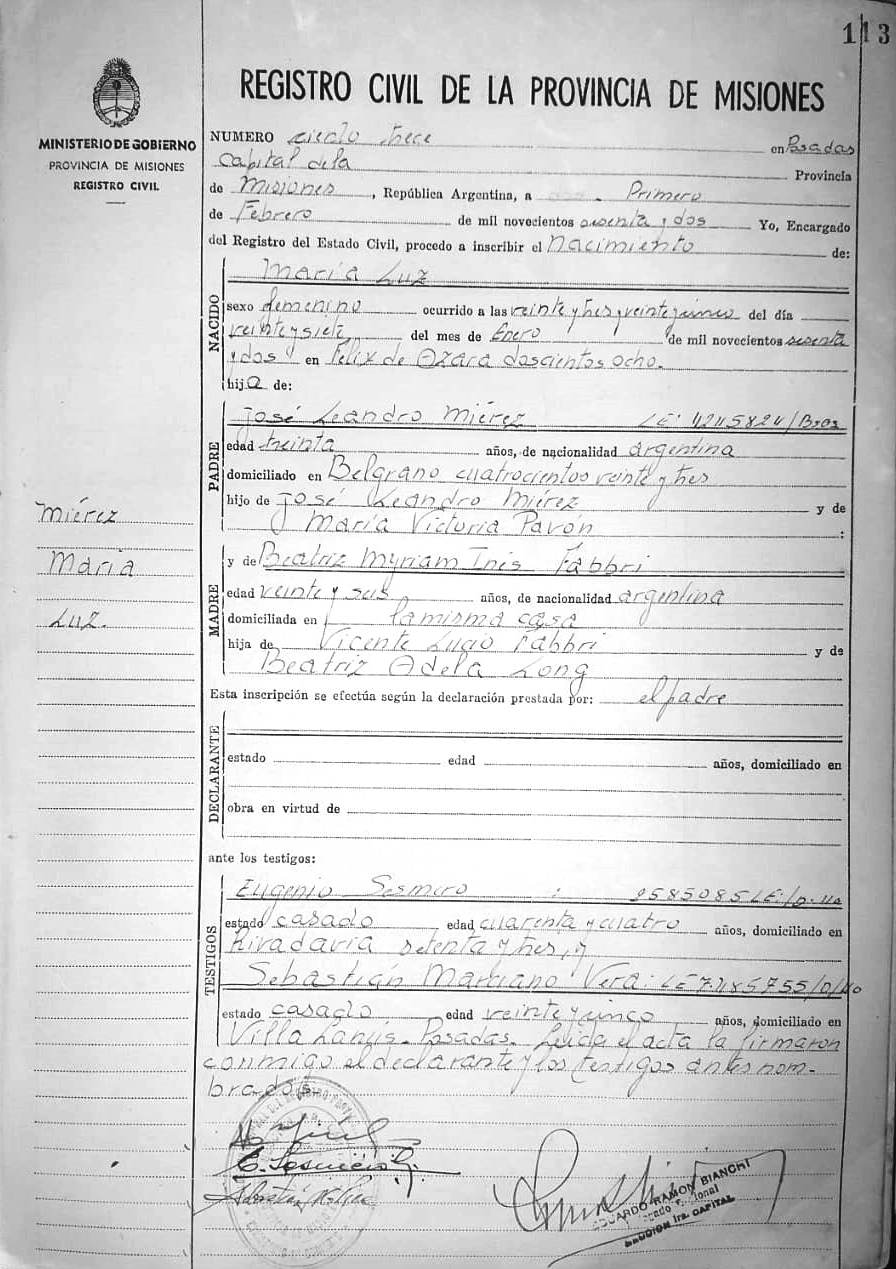 113
REGISTRO CIVIL DE LA PROVINCIA DE MISIONES
MINISTERIO DE GOBIERNO
PROVINCIA DE MISIONES
REGISTRO CIVIL
NUMERO ciento trece en Posadas
Capital de la Provincia
de Misiones, República Argentina, a Primero
de Febrero de mil novecientos sesenta y dos Yo, Encargado
del Registro del Estado Civil, procedo a inscribir el Nacimiento de:
NACIDO
María Luz
sexo femenino ocurrido a las veinte y tres y veinte y cinco del día
veinte y siete del mes de Enero de mil novecientos sesenta
y dos en Felix de Azara doscientos ocho.
hija de:
PADRE
José Leandro Miérez LE:
edad treinta años, de nacionalidad argentina
domiciliado en Belgrano cuatrocientos veinte y tres
hijo de José Leandro Miérez y de
María Victoria Pavón :
Miérez
María
Luz.
MADRE
y de Beatriz Myriam Inés Fabbri
edad veinte y seis años, de nacionalidad argentina
domiciliada en la misma casa
hija de Vicente Lucio Fabbri y de
Beatriz Adela Long
Esta inscripción se efectúa según la declaración prestada por: el padre
DECLARANTE
estado edad años, domiciliado en
obra en virtud de
ante los testigos:
TESTIGOS
Eugenio Sesmero :
estado casado edad cuarenta y cuatro años, domiciliado en
Rivadavia setenta y tres, y
Sebastián Marciano Vera: LE
estado casado edad veinte y cinco años, domiciliado en
Villa Lanús - Posadas. Leída el acta la firmaron
conmigo el declarante y los testigos antes nom-
brados
EDUARDO RAMON BIANCHI
SECCION 1ra. CAPITAL